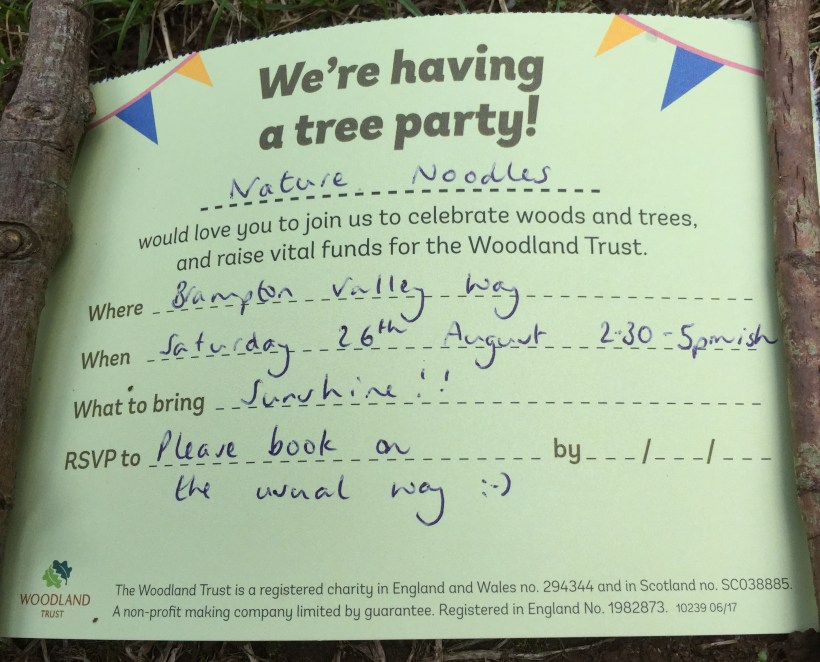 We're having
a tree party!
Nature Noodles
would love you to join us to celebrate woods and trees,
and raise vital funds for the Woodland Trust.
Where Brampton Valley Way
When Saturday 26th August 2-30-5pmish
What to bring Sunshine!!
RSVP to Please book on by / /
the usual way :-)
WOODLAND
TRUST
The Woodland Trust is a registered charity in England and Wales no. 294344 and in Scotland no. SC038885.
A non-profit making company limited by guarantee. Registered in England No. 1982873. 10239 06/17